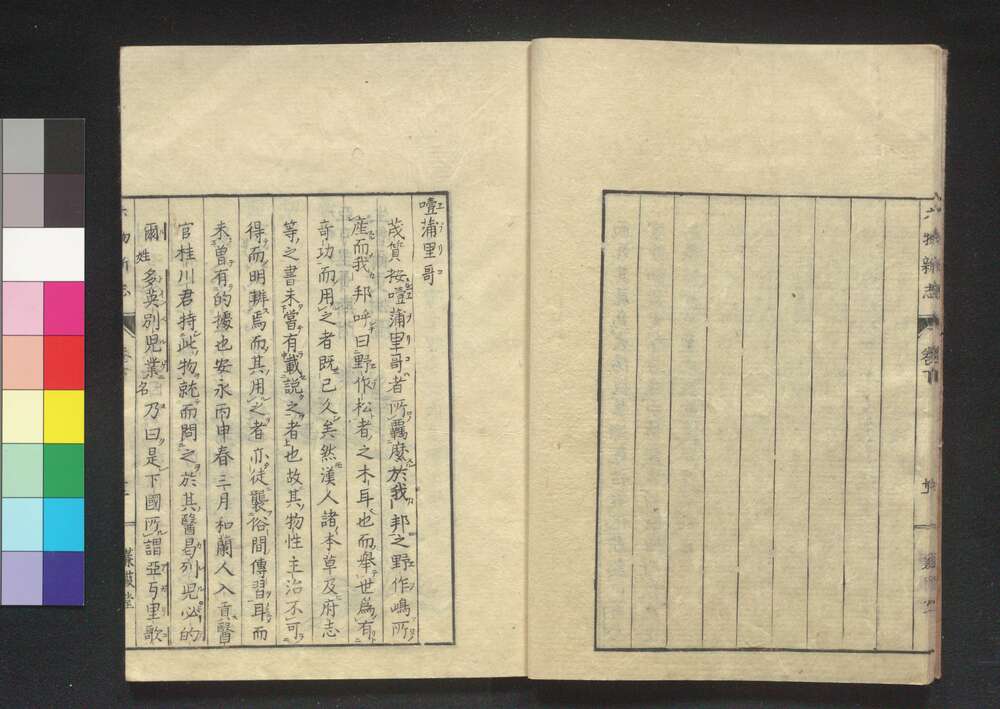 六物新志 卷下
噎蒲里哥
茂質按噎蒲里哥者所羈縻於我邦之野作嶋所
産而我邦呼曰野作松者之木耳也而舉世爲有
奇功而用之者既已久矣然漢人諸本草及府志
等之書未嘗有載説之者也故其物性主治不可
得而明辨焉而其用之者亦徒襲俗間傳習耳而
未曾有的據也安永丙申春三月和蘭人入貢醫
官桂川君持此物就而問之於其醫曷列兒必的
爾姓多英別兒業名乃曰是下國所謂亞瓦里歌